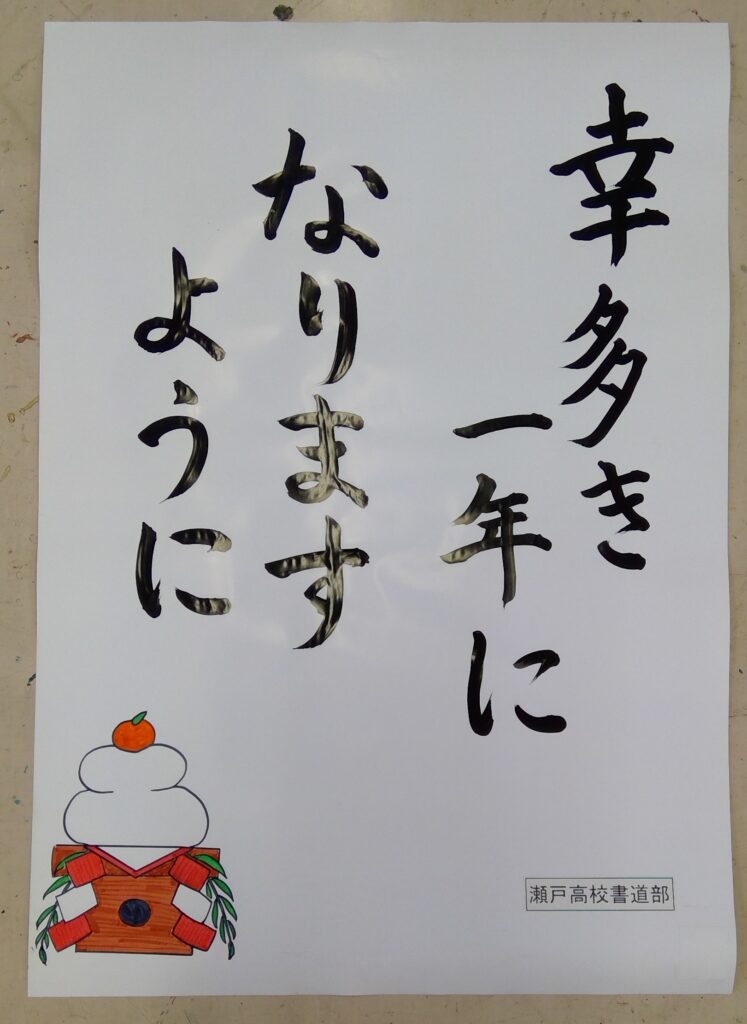 幸多き
一年に
なります
ように
瀬戸高校書道部